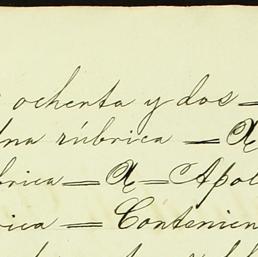 ochenta y dos =
Una rúbrica = A
brica = A = Apol
rica = Contenien